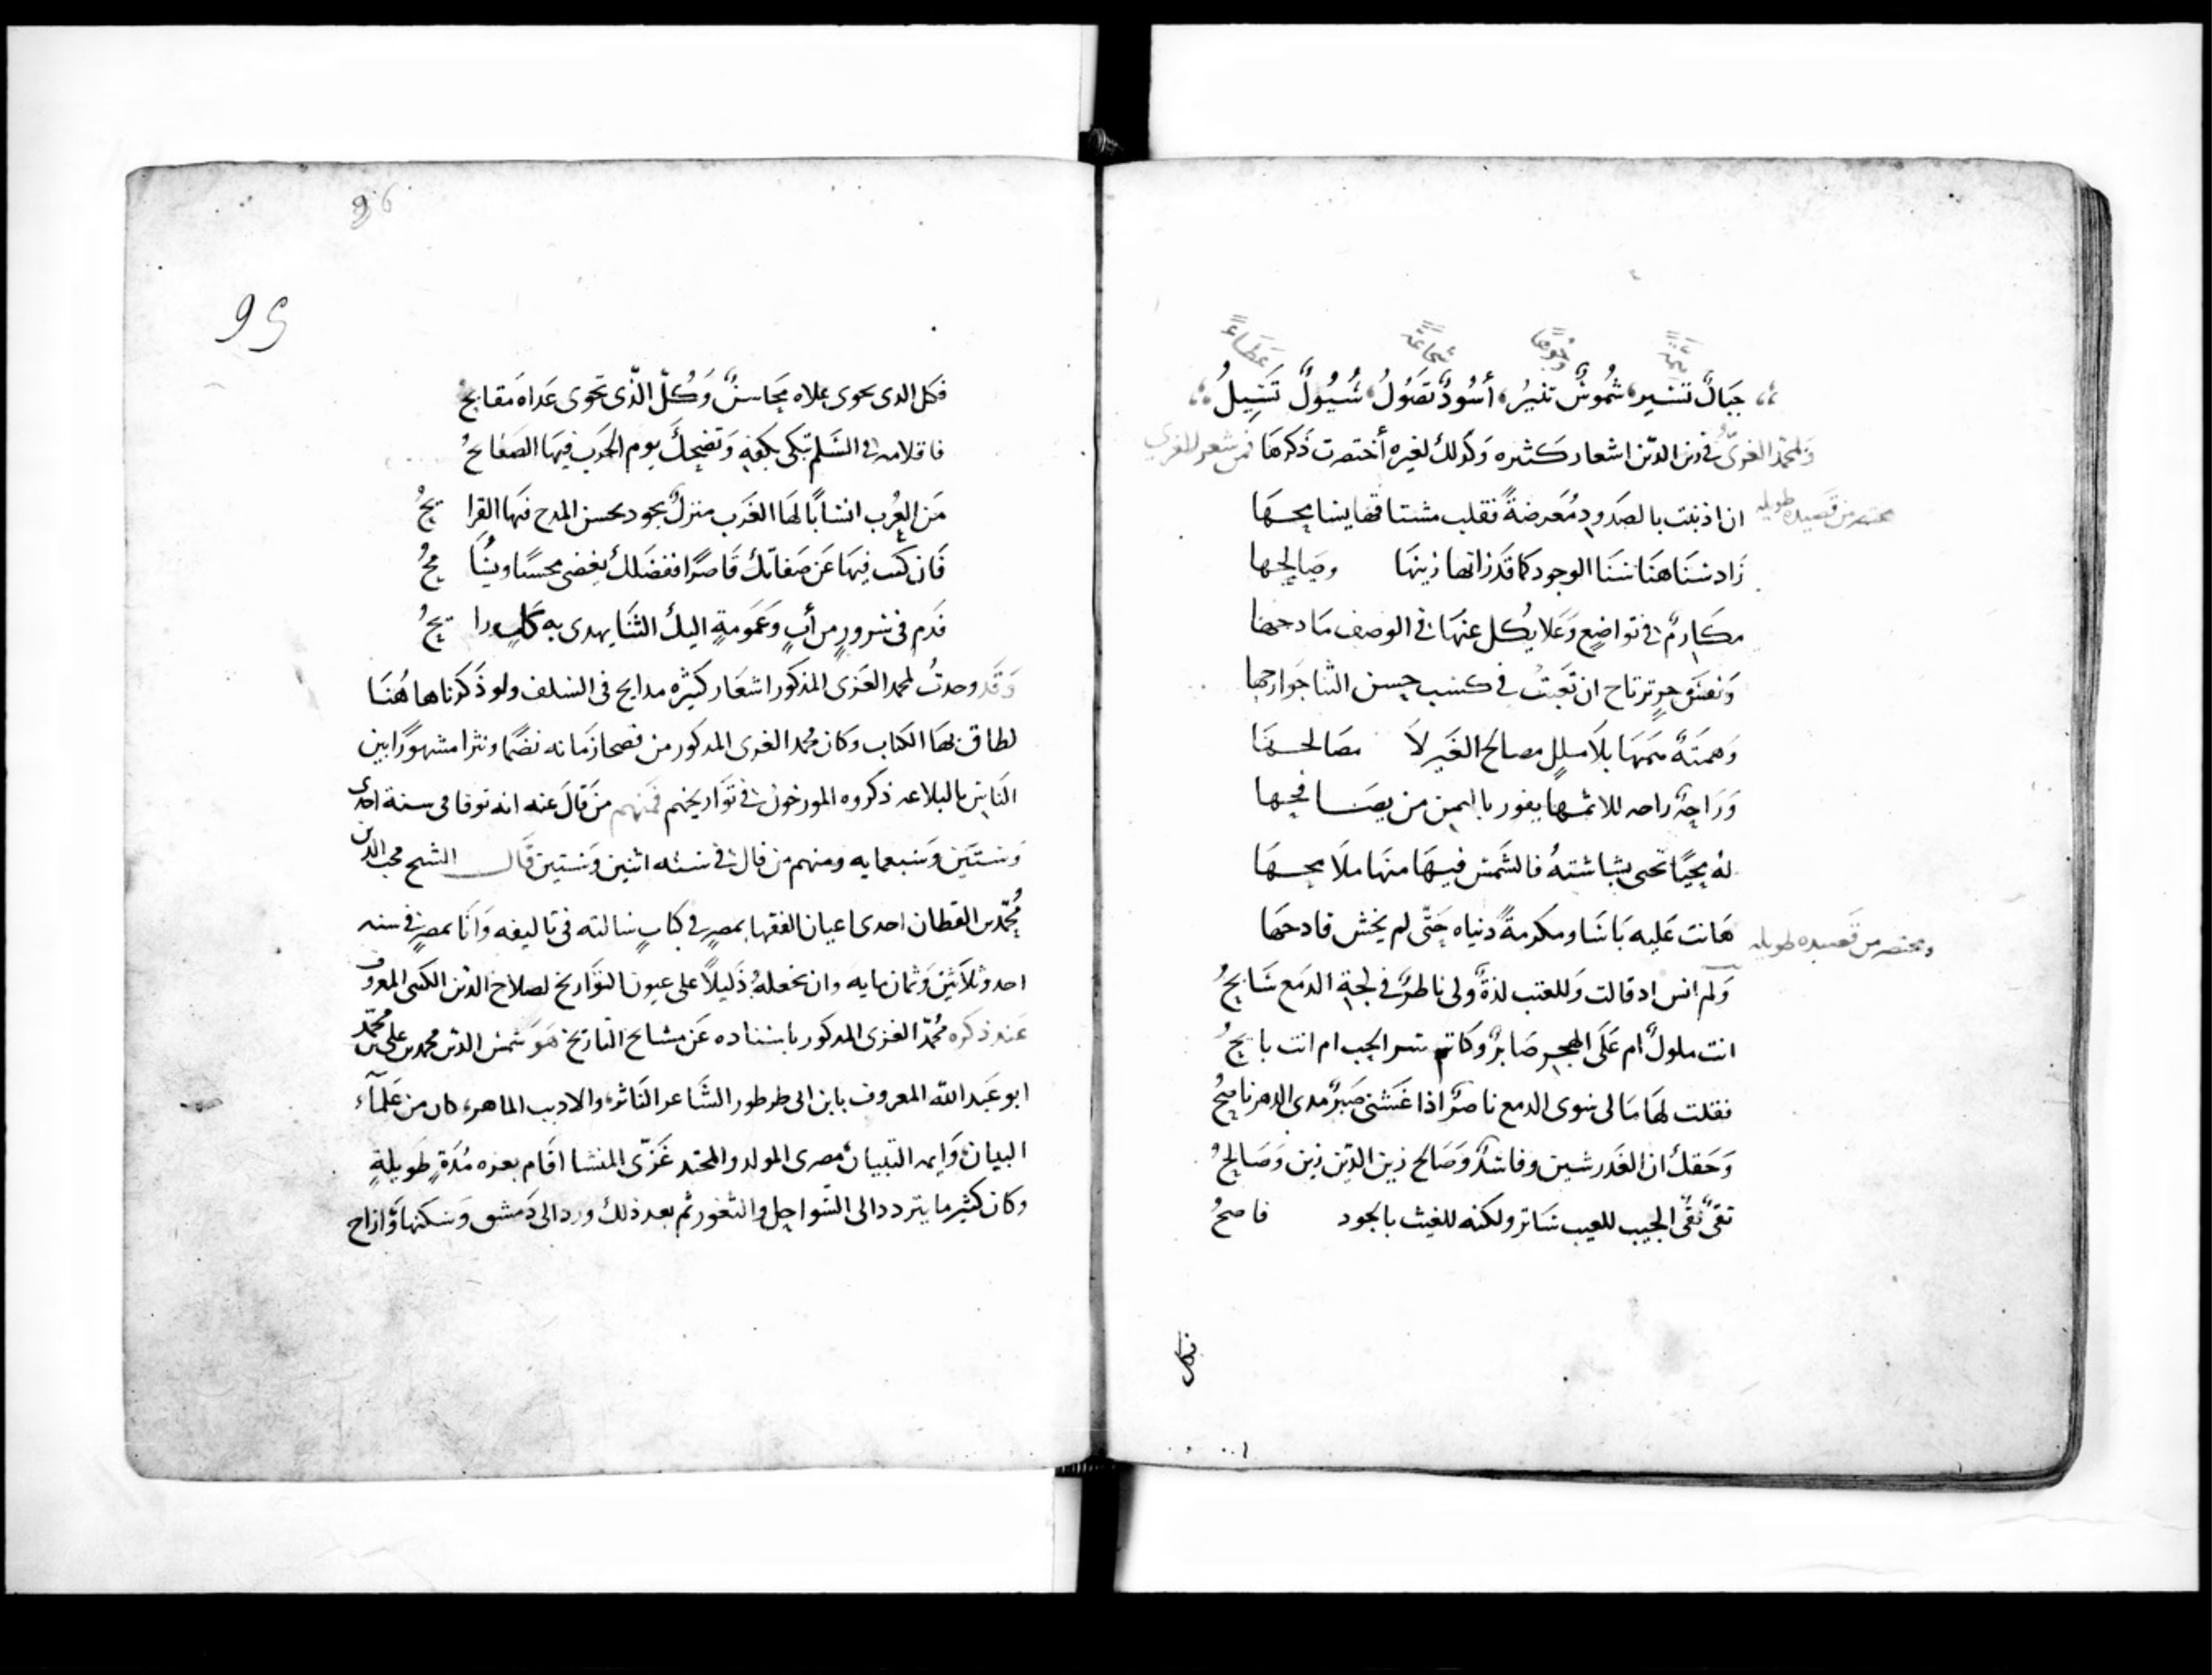 همّةً وجوهًا شجاعةً عَطاءً
جبَالٌ تسير، شُموسٌ تنيرُ، أسُودٌ تَصُولُ، سُيُولٌ تَسِيلُ
ولمحمّد الغزيّ في زين الدّين اشعار كثيره وكذلك لغيره أختصرت ذكرها فمن شعر للغزي
مختصر من قصيده طويله
ان اذنبت بالصدودِ مُعَرضةً فقلب مشتاقها يسامحها
زاد سَنَاهَا سَنَا الوجود كما قد زانها زينها وصَالحها
مكارمٌ في تواضعٍ وَعَلا يكل عنها في الوصف مادحها
وَنفسُ حرٍ ترتاح ان تَعبت في كسب حسن الثنا جَوارحها
وَهمَّةٌ همّها بلا مللٍ مصالح الغَير لا مصَالحها
وَرَاحةٌ راحه للاثمها يفوز باليمن من يصَافحها
لهُ محيًّا تحيى بشاشتهُ فالشَمسُ فيها منهَا ملامحها
هَانت عَليه بَاسًا ومكرمةً دنياه حَتّى لم يخش فادحهَا
ومختصر من قصيده طويله
وَلم انس اد قالت وَللعتب لذةٌ ولى ناظرٌ في لجة الدمَع سَابحُ
انت ملولٌ ام عَلَى الهجرِ صَابرٌ وكاتم سر الحب ام انت بايحُ
فقلت لهَا مَا لى سوى الدمع ناصرٌ اذا غشنى صَبرٌ مدى الدهر ناصحُ
وَحَقك ان الغَدر شين وفاسدٌ وَصَالح زين الدّين زين وَصَالحُ
تقىٌّ نقىُّ الجيب للعيب سَاتر ولكنه للغيث بالجود فاضحُ
فكل
96
95
فكل الدى يحوى علاه محَاسنٌ وَكُلّ الذّى تحوى عَداه مَقابحُ
فاقلامه في السَلم تبكى بكفهِ وَتضحِكُ يوم الحَرب فيهَا الصَفائحُ
مَن العُرب انسابًا لهَا الغَرب منزلٌ يجود بحسن المدح فيهَا القرايحُ
فَان كنت فيهَا عَن صَفاتك قَاصرًا ففضلك يغضى محسنًا ويسَامحُ
فدَم فى سُرورٍ من أبٍ وَعَمومةٍ اليك الثنَا يهدى به كلب رايحُ
وَقَد وجدتُ لمحمد الغَزى المذكور اشعَار كثيره مدايح فى السلف ولو ذَكَرناها هُنَا
لطاق بها الكتاب وكان محمد الغزى المدكور من فصحا زَمانه نضمًا ونثرا مشهورًا بين
النَاسِ بالبلاعه ذكروه المورخون في تَواريخهم فمنهم مَن قالَ عنه انه توفا فى سنة احدى
وَستَين وَسَبعمايه ومنهم من قال في سنه اثنين وَستين قَال الشيح محب الدين
مُحمّد بن القطان احدى اعيان الفقها بمصر في كتابٍ سالته فى تاليفه وَانَا بمصر في سنه
احد وثلاَثين وَثمان مايه وان نجعلهُ ذَليلاً على عيون التوَاريخ لصلاح الدّين الكتبى المعروف
عَند ذكره مُحمّد الغزى المدكور باسناده عَن مشايح التاريخ هَوَ شمس الدّين محمد بن على بن محمّد
ابو عَبد الله المعروف بابن ابى طرطور الشَاعر النَاثر، والاديب الماهر، كان من عَلمآء
البيان، وَايمه التبيان، مصرى المولد والمحتد غَزّى المنشا اقَام بعزه مُدّةٍ طَويلةٍ
وكان كثير ما يتردد الى السّواحل والثغور ثم بعد ذلك ورد الى دَمشق وَسكنها وَازاح